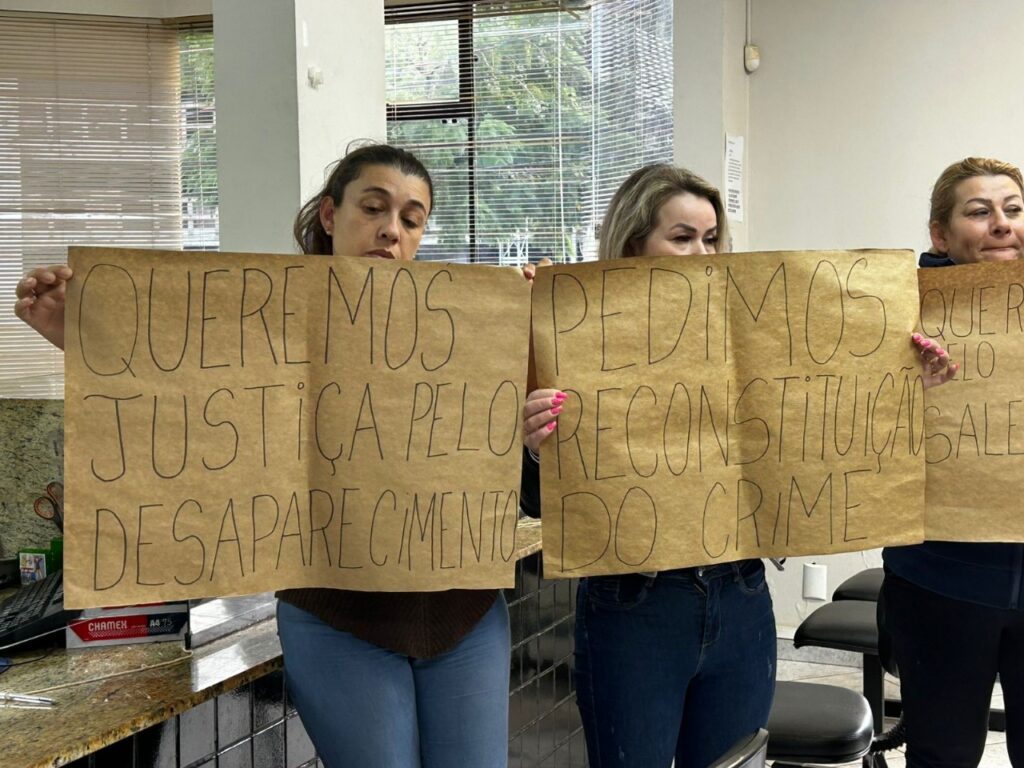 QUEREMOS
JUSTiÇA PELO
DESAPARECiMENTO
PEDiMOS
RECONSTiTUiÇÃO
DO CRiME
QUER
PELO
SALE
CHAMEX A4 75